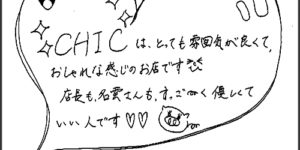 CHICは、とっても雰囲気が良くて、
おしゃれな感じのお店です
店長も、名雲さんも、すっごーく優しくて
いい人です♡♡